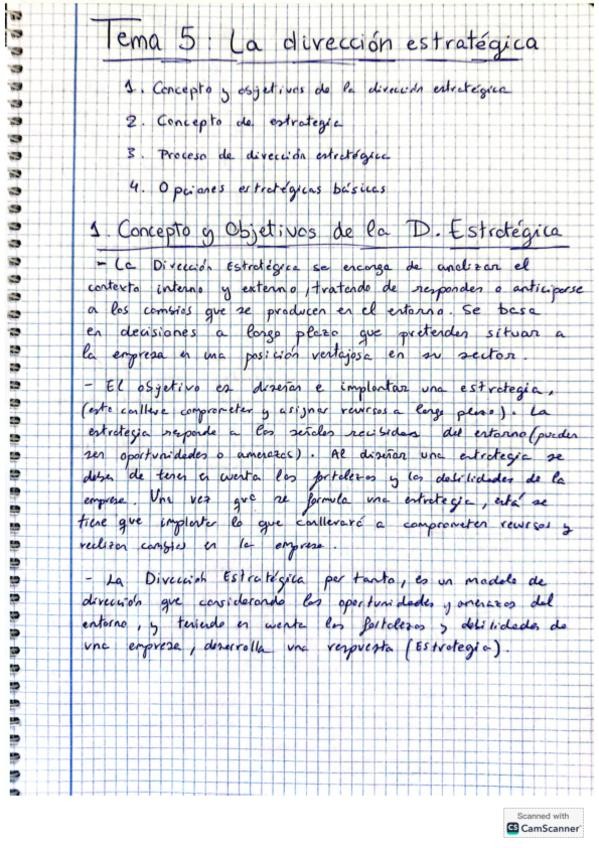 Tema 5: La dirección estratégica
1. Concepto y objetivos de la dirección estratégica
2. Concepto de estrategia
3. Proceso de dirección estratégica
4. Opciones estratégicas básicas
1. Concepto y Objetivos de la D. Estratégica
- La Dirección Estratégica se encarga de analizar el
contexto interno y externo, tratando de responder o anticiparse
a los cambios que se producen en el entorno. Se basa
en decisiones a largo plazo que pretenden situar a
la empresa en una posición ventajosa en su sector.
- El objetivo es diseñar e implantar una estrategia,
(esto conlleva comprometer y asignar recursos a largo plazo). La
estrategia responde a las señales recibidas del entorno (pueden
ser oportunidades o amenazas). Al diseñar una estrategia se
deben de tener en cuenta las fortalezas y las debilidades de la
empresa. Una vez que se formula una estrategia, está se
tiene que implantar lo que conllevará a comprometer recursos y
realizar cambios en la empresa.
- La Dirección Estratégica por tanto, es un modelo de
dirección que considerando las oportunidades y amenazas del
entorno, y teniendo en cuenta las fortalezas y debilidades de
una empresa, desarrolla una respuesta (Estrategia).
Scanned with
CS CamScanner